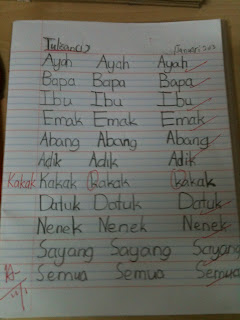 Ayah Ayah Ayah
Bapa Bapa Bapa
Ibu Ibu Ibu
Emak Emak Emak
Abang Abang Abang
Adik Adik Adik
Kakak Kakak kakak kakak
Datuk Datuk Datuk
Nenek Nenek Nenek
Sayang Sayang Sayang
Semua Semua Semua